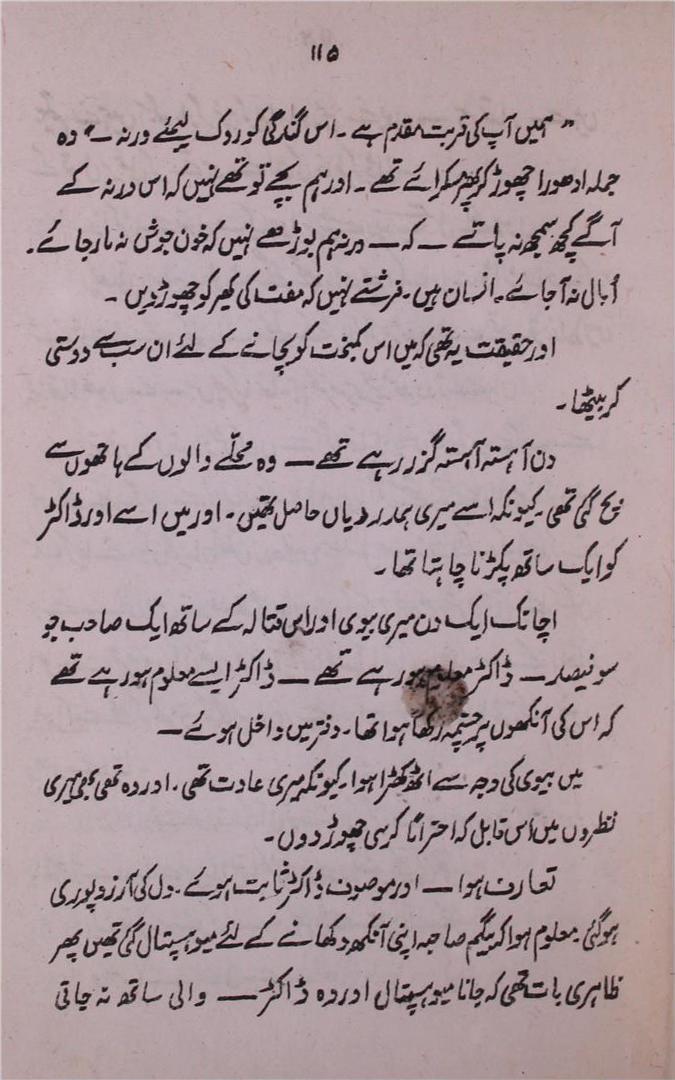 ۱۱۵
" ہمیں آپ کی قربت مقدم ہے ۔ اس گندگی کو روک لیجئے ورنہ ــ" وہ
جملہ ادھورا چھوڑ کر پھر مسکرائے تھے ۔ اور ہم بچے تو تھے نہیں کہ اس ورنہ کے
آگے کچھ سمجھ نہ پاتے ــ کہ ــ ورنہ ہم بوڑھے نہیں کہ خون جوش نہ مار جائے ۔
اُبال نہ آجائے ۔ انسان ہیں ۔ فرشتے نہیں کہ مفت کی کھیر کو چھوڑ دیں ۔
اور حقیقت یہ تھی کہ میں اس کمبخت کو بچانے کے لئے ان سب سے دوستی
کر بیٹھا ۔
دن آہستہ آہستہ گزر رہے تھے ــ وہ محلّے والوں کے ہاتھوں سے
بچ گئی تھی ۔ کیونکہ اسے میری ہمدردیاں حاصل تھیں ۔ اور میں اسے اور ڈاکٹر
کو ایک ساتھ پکڑنا چاہتا تھا ۔
اچانک ایک دن میری بیوی اور اس قتالہ کے ساتھ ایک صاحب جو
سو فیصد ــ ڈاکٹر معلوم ہو رہے تھے ــ ڈاکٹر ایسے معلوم ہو رہے تھے
کہ اس کی آنکھوں پر چشمہ رکھا ہوا تھا ۔ دفتر میں داخل ہوئے ــ
میں بیوی کی وجہ سے اٹھ کھڑا ہوا ۔ کیونکہ میری عادت تھی ۔ اور وہ تھی بھی میری
نظروں میں اس قابل کہ احتراماً کرسی چھوڑ دوں ۔
تعارف ہوا ــ اور موصوف ڈاکٹر ثابت ہوئے ۔ دل کی آرزو پوری
ہو گئی ۔ معلوم ہوا کہ بیگم صاحبہ اپنی آنکھ دکھانے کے لئے میو ہسپتال گئی تھیں پھر
ظاہری بات تھی کہ جانا میو ہسپتال اور وہ ڈاکٹر ــ والی ساتھ نہ جاتی